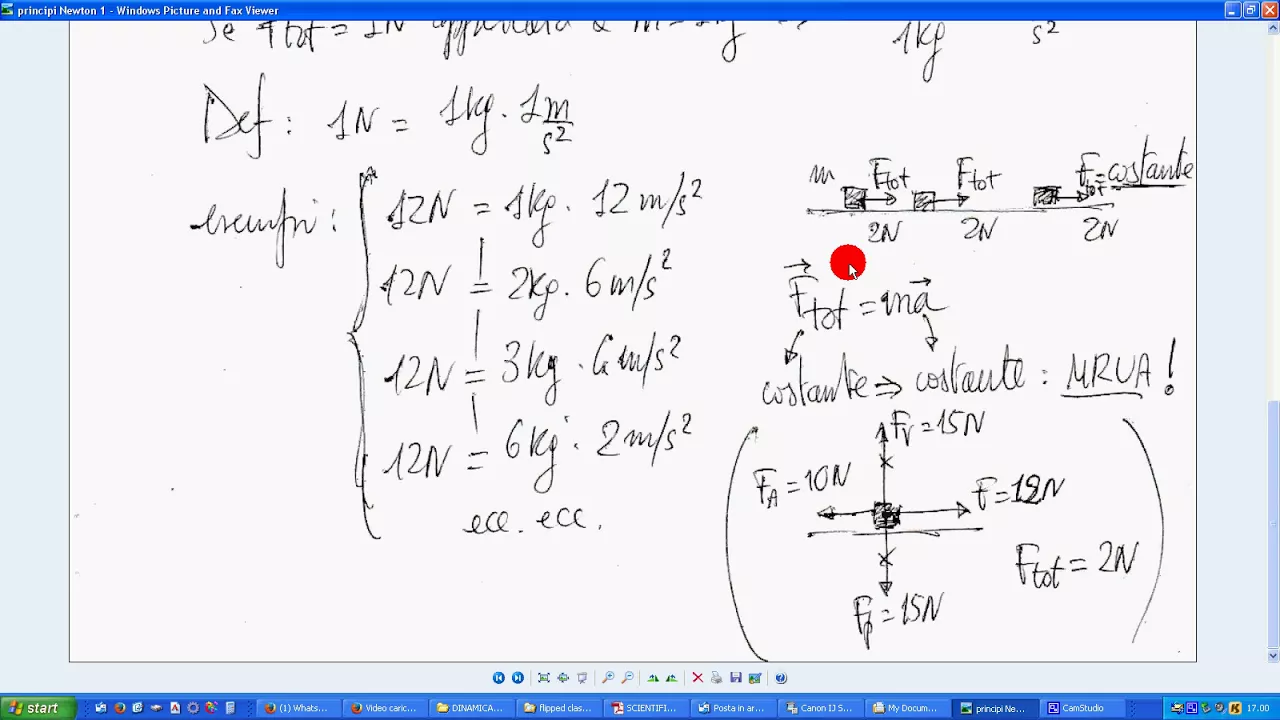 principi Newton 1 - Windows Picture and Fax Viewer
Se Ftot = 1N
1kg s²
Def: 1N = 1kg · 1 m/s²
esempi:
12N = 1kg · 12 m/s²
12N = 2kg · 6 m/s²
12N = 3kg · 4 m/s²
12N = 6kg · 2 m/s²
ecc. ecc.
m Ftot Ftot Ftot = costante
2N 2N 2N
Ftot = ma
costante ⇒ costante : MRUA!
FV = 15N
FA = 10N F = 12N
Ftot = 2N
Fp = 15N
start (1) Whats... Video caric... DINAMICA... flipped clas... SCIENTIFI... Posta in ar... Canon IJ S... My Docum... principi Ne... CamStudio 17.00